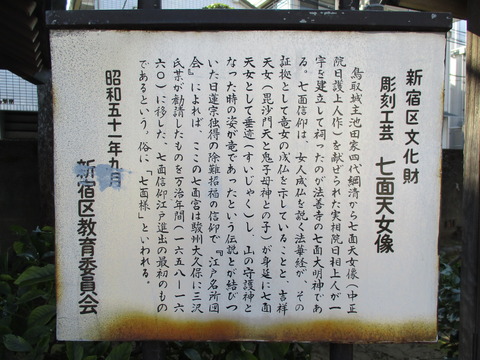 新宿区文化財
彫刻工芸 七面天女像
鳥取城主池田家四代綱清から七面天女像（中正
院日護上人作）を献ぜられた実相院日相上人が一
宇を建立して祠ったのが法善寺の七面大明神であ
る。七面信仰は、女人成仏を説く法華経が、その
証拠として竜女の成仏を示していることと、吉祥
天女（毘沙門天と鬼子母神との子）が身延に七面
天女として垂迹（すいじゃく）し、山の守護神と
なった時の姿が竜であったという伝説とが結びつ
いた日蓮宗独得の除難招福の信仰で『江戸名所図
会』によれば、ここの七面宮は駿州大久保に三沢
氏某が勧請したものを万治年間（一六五八－一六
六〇）に移した、七面信仰江戸進出の最初のもの
であるという。俗に「七面様」といわれる。
昭和五十一年九月
新宿区教育委員会